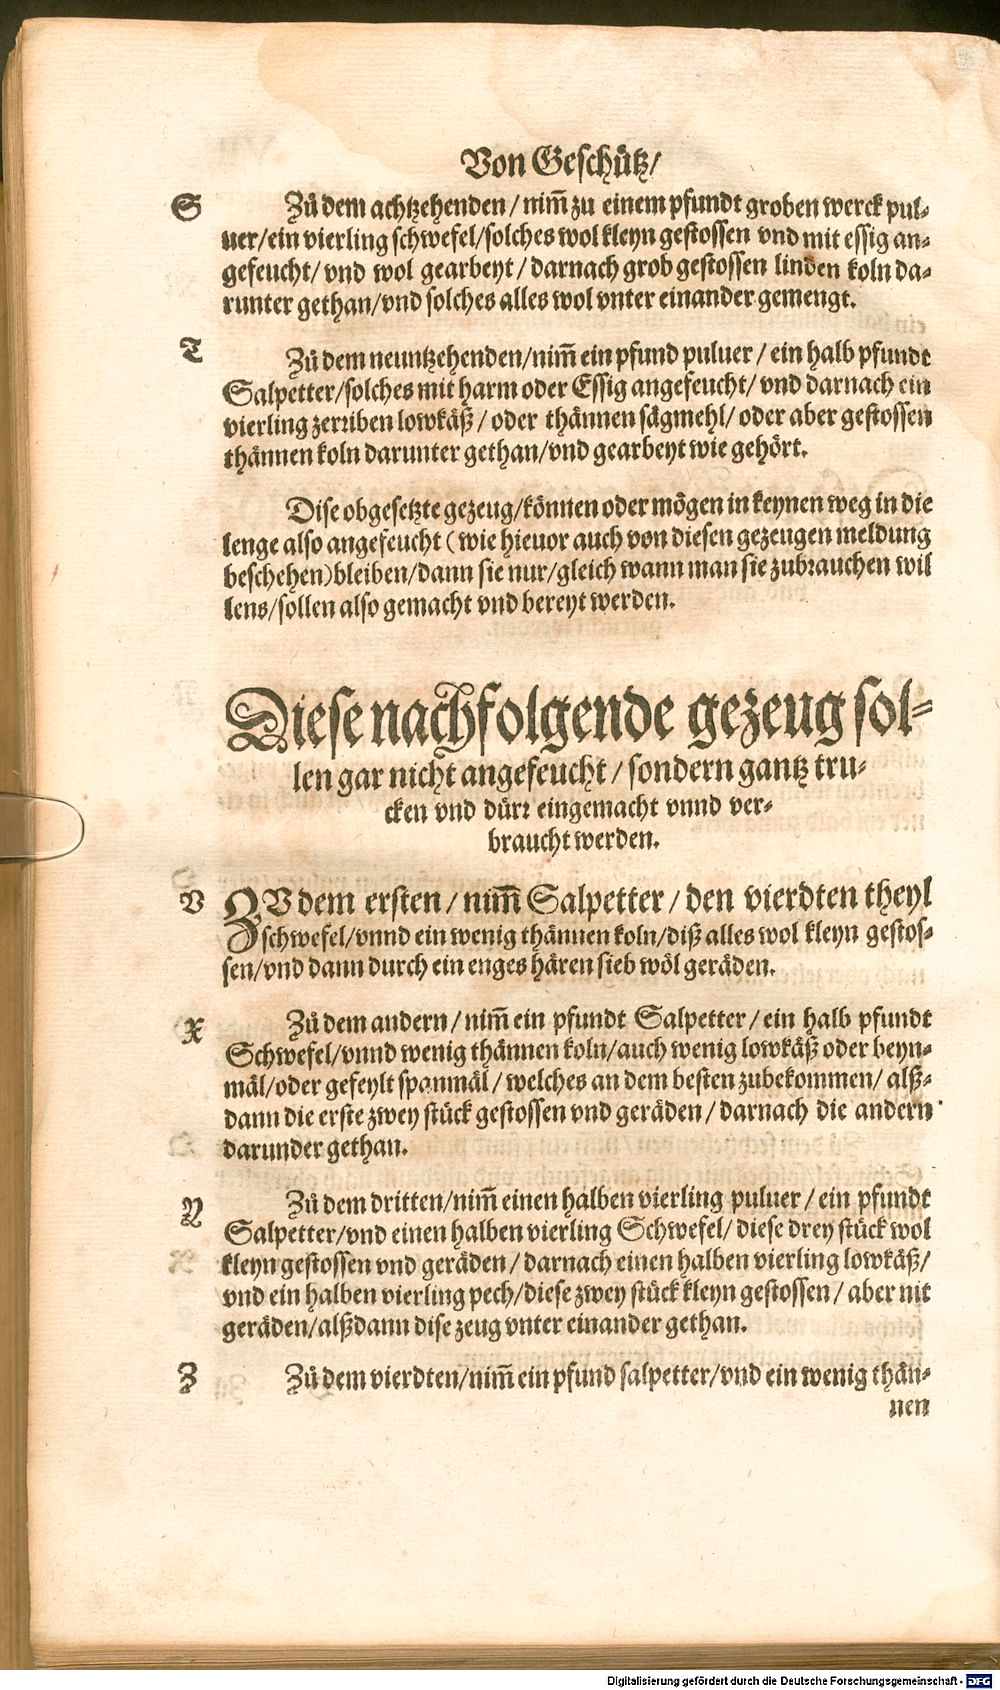 Von Geschütz/
S Zů dem achtzehenden / nim̃ zu einem pfundt groben werck pul-
uer/ein vierling schwefel/solches wol kleyn gestossen vnd mit essig an-
gefeucht/ vnd wol gearbeyt / darnach grob gestossen linden koln da-
runter gethan/vnd solches alles wol vnter einander gemengt.
T Zů dem neuntzehenden/nim̃ ein pfund puluer / ein halb pfundt
Salpetter/solches mit harm oder Essig angefeucht/ vnd darnach ein
vierling zerriben lowkäß / oder thännen sägmehl/ oder aber gestossen
thännen koln darunter gethan/vnd gearbeyt wie gehört.
Dise obgesetzte gezeug/können oder mögen in keynen weg in die
lenge also angefeucht ( wie hieuor auch von diesen gezeugen meldung
beschehen)bleiben/dann sie nur/gleich wann man sie zubrauchen wil
lens/sollen also gemacht vnd bereyt werden.
Diese nachfolgende gezeug sol-
len gar nicht angefeucht / sondern gantz tru-
cken vnd dürr eingemacht vnnd ver-
braucht werden.
V ZV dem ersten / nim̃ Salpetter / den vierdten theyl
schwefel/vnnd ein wenig thännen koln/diß alles wol kleyn gestos-
sen/vnd dann durch ein enges hären sieb wöl geräden.
X Zů dem andern / nim̃ ein pfundt Salpetter / ein halb pfundt
Schwefel/vnnd wenig thännen koln/auch wenig lowkäß oder beyn-
mäl/oder gefeylt spanmäl / welches an dem besten zubekommen/ alß-
dann die erste zwey stück gestossen vnd geräden / darnach die andern
darunder gethan.
Y Zů dem dritten/nim̃ einen halben vierling puluer / ein pfundt
Salpetter/vnd einen halben vierling Schwefel/ diese drey stück wol
kleyn gestossen vnd geräden / darnach einen halben vierling lowkäß/
vnd ein halben vierling pech/diese zwey stück kleyn gestossen / aber nit
geräden/alßdann dise zeug vnter einander gethan.
Z Zů dem vierdten/nim̃ ein pfund salpetter/vnd ein wenig thän-
nen
Digitalisierung gefördert durch die Deutsche Forschungsgemeinschaft - DFG